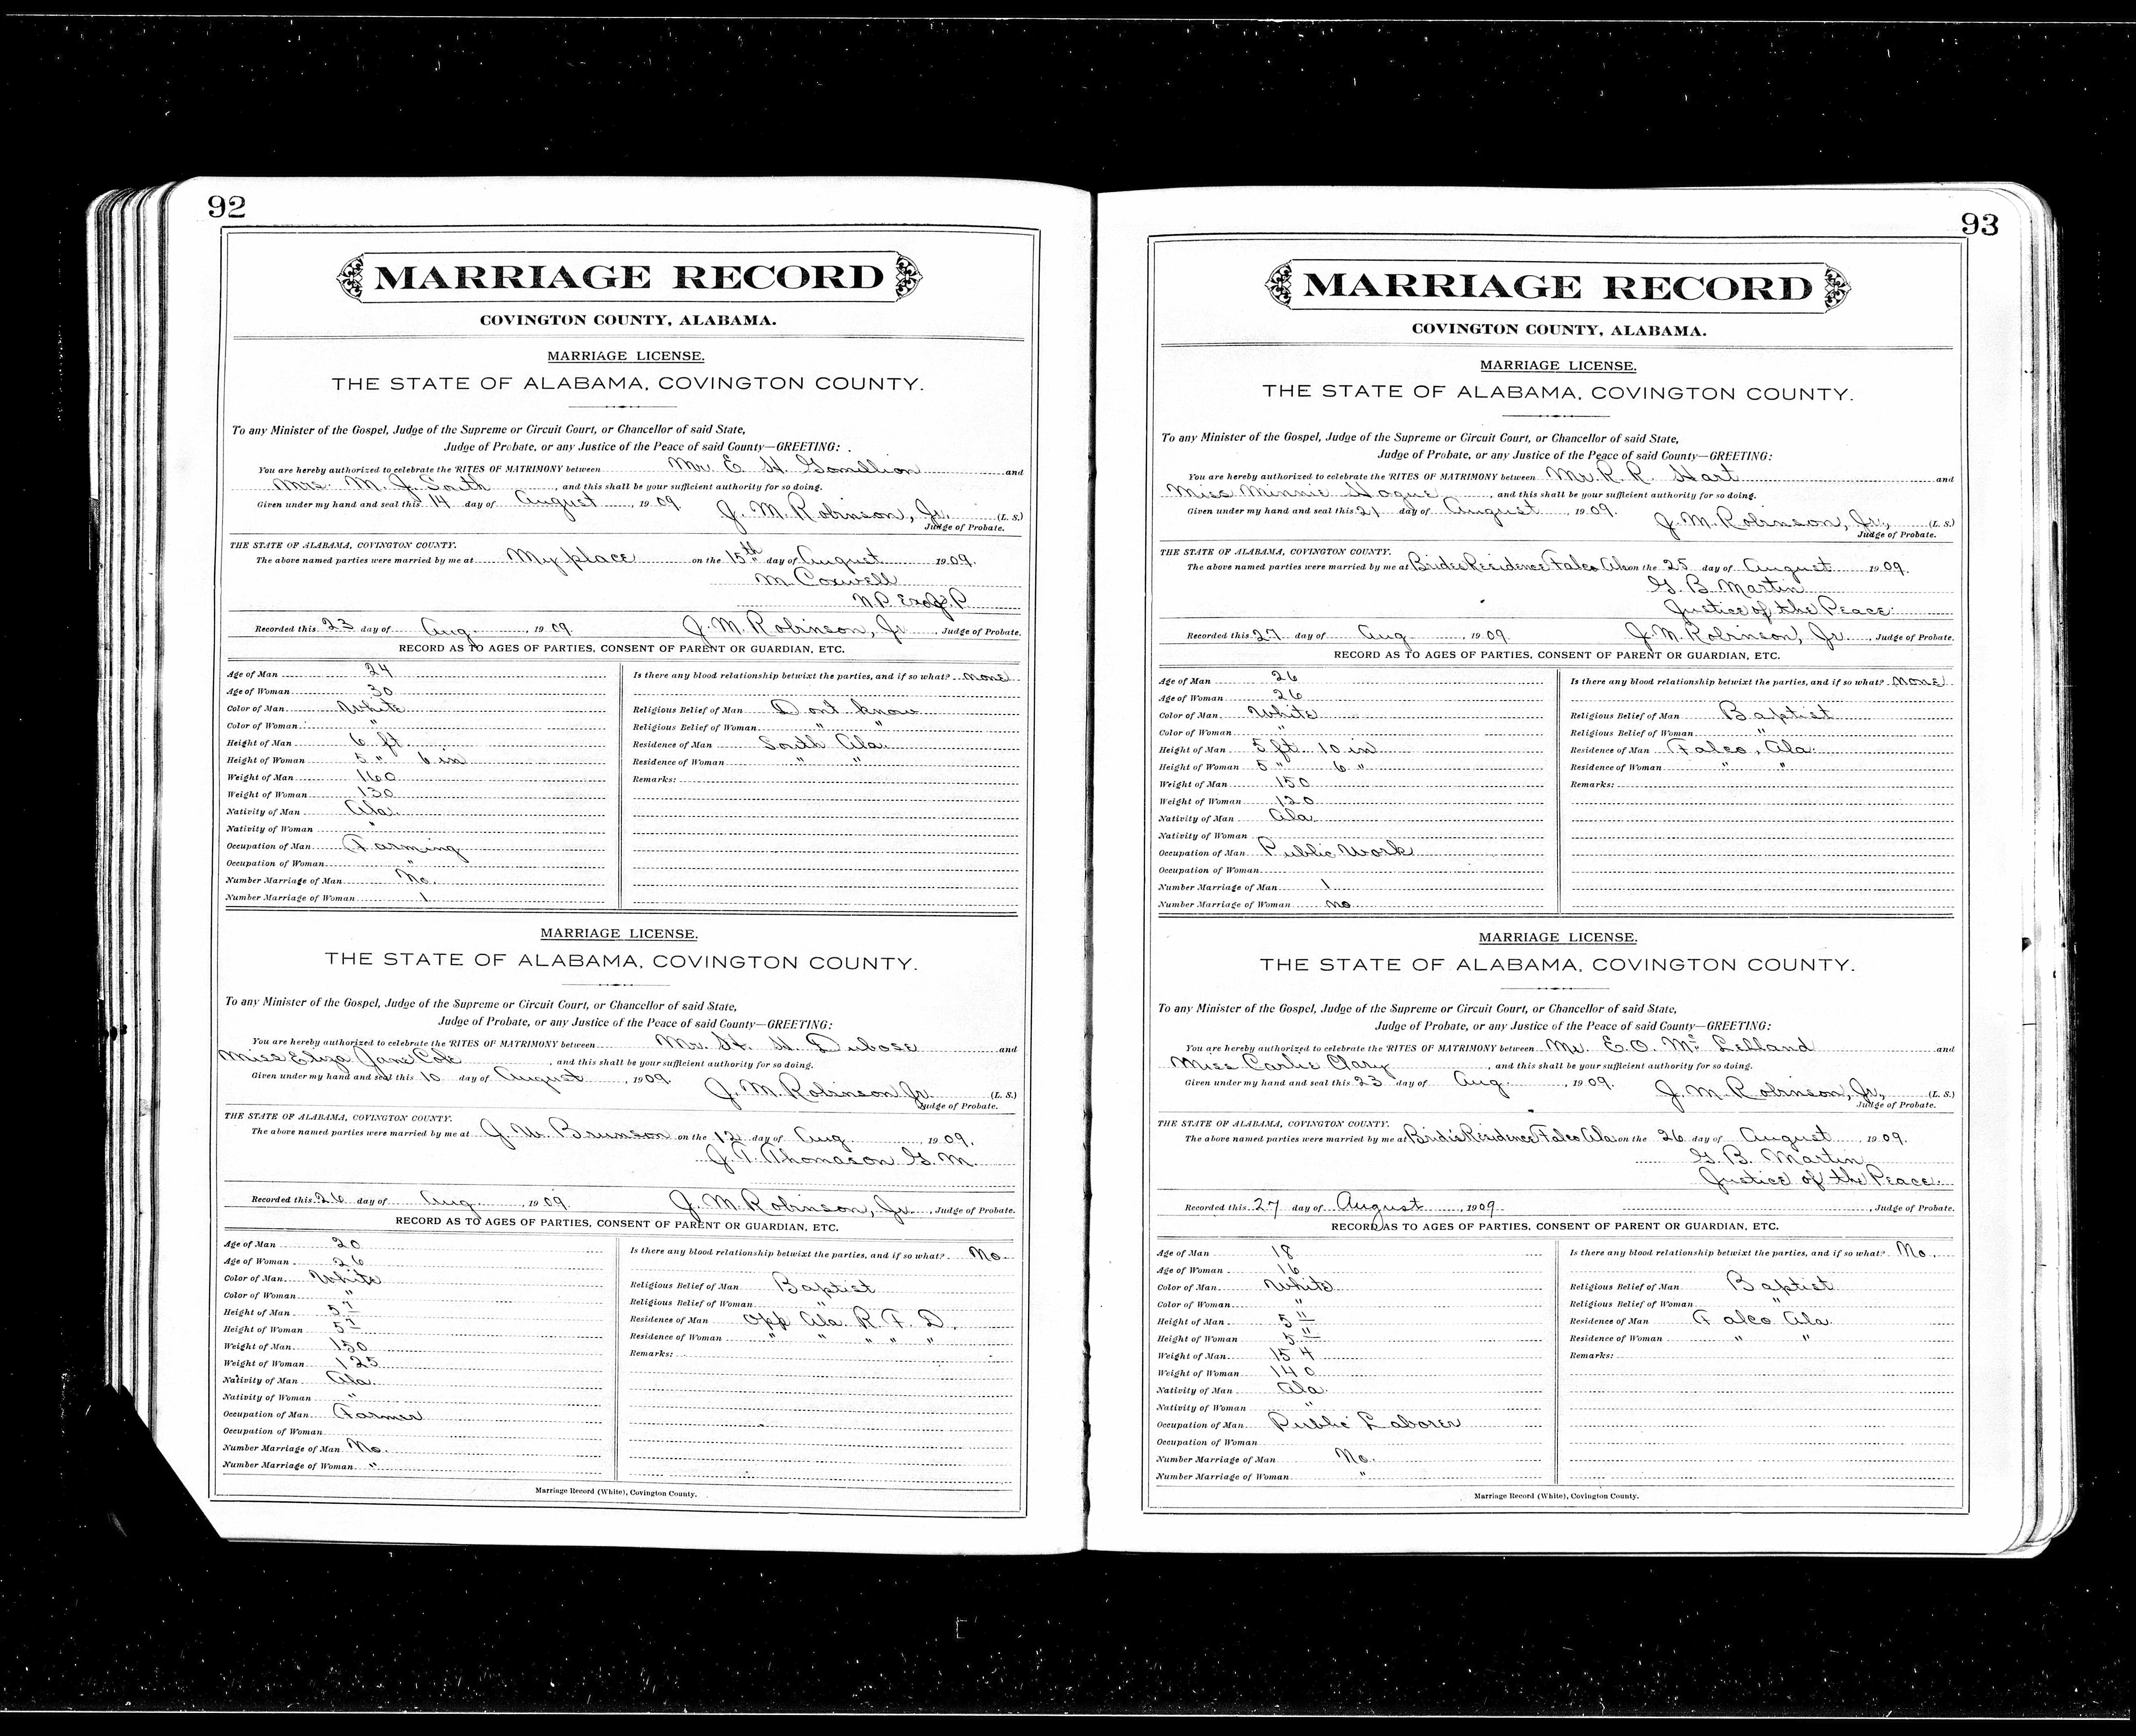 92
MARRIAGE RECORD
COVINGTON COUNTY, ALABAMA.
MARRIAGE LICENSE.
THE STATE OF ALABAMA, COVINGTON COUNTY.
To any Minister of the Gospel, Judge of the Supreme or Circuit Court, or Chancellor of said State,
Judge of Probate, or any Justice of the Peace of said County—GREETING:
You are hereby authorized to celebrate the RITES OF MATRIMONY between Mr. E. H. Gomillion and
Mrs. M. J. South, and this shall be your sufficient authority for so doing.
Given under my hand and seal this 14 day of August, 1909. J. M. Robinson, Jr. (L. S.)
Judge of Probate.
THE STATE OF ALABAMA, COVINGTON COUNTY.
The above named parties were married by me at My place on the 15th day of August 1909.
M. Coxwell
N.P. Exof J.P.
Recorded this 23 day of Aug., 1909 J. M. Robinson, Jr., Judge of Probate.
RECORD AS TO AGES OF PARTIES, CONSENT OF PARENT OR GUARDIAN, ETC.
Age of Man 24
Age of Woman 30
Color of Man White
Color of Woman "
Height of Man 6 ft.
Height of Woman 5 " 6 in
Weight of Man 160
Weight of Woman 130
Nativity of Man Ala.
Nativity of Woman "
Occupation of Man Farming
Occupation of Woman "
Number Marriage of Man No.
Number Marriage of Woman 1
Is there any blood relationship betwixt the parties, and if so what? none
Religious Belief of Man Dont know
Religious Belief of Woman " "
Residence of Man South Ala.
Residence of Woman " "
Remarks:
MARRIAGE LICENSE.
THE STATE OF ALABAMA, COVINGTON COUNTY.
To any Minister of the Gospel, Judge of the Supreme or Circuit Court, or Chancellor of said State,
Judge of Probate, or any Justice of the Peace of said County—GREETING:
You are hereby authorized to celebrate the RITES OF MATRIMONY between Mr. H. H. Dubose and
Miss Eliza Jane Cole, and this shall be your sufficient authority for so doing.
Given under my hand and seal this 10 day of August, 1909. J. M. Robinson Jr. (L. S.)
Judge of Probate.
THE STATE OF ALABAMA, COVINGTON COUNTY.
The above named parties were married by me at J. W. Brunson on the 12 day of Aug., 1909.
J. T. Thomason G. M.
Recorded this 26 day of Aug., 1909 J. M. Robinson, Jr., Judge of Probate.
RECORD AS TO AGES OF PARTIES, CONSENT OF PARENT OR GUARDIAN, ETC.
Age of Man 20
Age of Woman 26
Color of Man White
Color of Woman "
Height of Man 5 7
Height of Woman 5
Weight of Man 150
Weight of Woman 125
Nativity of Man Ala.
Nativity of Woman "
Occupation of Man Farmer
Occupation of Woman
Number Marriage of Man No.
Number Marriage of Woman "
Is there any blood relationship betwixt the parties, and if so what? No
Religious Belief of Man Baptist
Religious Belief of Woman "
Residence of Man Opp Ala. R. F. D.
Residence of Woman " " " " "
Remarks:
Marriage Record (White), Covington County.
93
MARRIAGE RECORD
COVINGTON COUNTY, ALABAMA.
MARRIAGE LICENSE.
THE STATE OF ALABAMA, COVINGTON COUNTY.
To any Minister of the Gospel, Judge of the Supreme or Circuit Court, or Chancellor of said State,
Judge of Probate, or any Justice of the Peace of said County—GREETING:
You are hereby authorized to celebrate the RITES OF MATRIMONY between Mr. R. R. Hart and
Miss Minnie Hogue, and this shall be your sufficient authority for so doing.
Given under my hand and seal this 21 day of August, 1909. J. M. Robinson, Jr., (L. S.)
Judge of Probate.
THE STATE OF ALABAMA, COVINGTON COUNTY.
The above named parties were married by me at Brides Residence Falco Ala on the 25 day of August 1909.
G. B. Martin
Justice of the Peace.
Recorded this 27 day of Aug, 1909. J. M. Robinson, Jr., Judge of Probate.
RECORD AS TO AGES OF PARTIES, CONSENT OF PARENT OR GUARDIAN, ETC.
Age of Man 26
Age of Woman 26
Color of Man White
Color of Woman "
Height of Man 5 ft. 10 in
Height of Woman 5 " 6 "
Weight of Man 150
Weight of Woman 120
Nativity of Man Ala.
Nativity of Woman
Occupation of Man Public Work
Occupation of Woman
Number Marriage of Man 1
Number Marriage of Woman no
Is there any blood relationship betwixt the parties, and if so what? none
Religious Belief of Man Baptist
Religious Belief of Woman "
Residence of Man Falco, Ala.
Residence of Woman " "
Remarks:
MARRIAGE LICENSE.
THE STATE OF ALABAMA, COVINGTON COUNTY.
To any Minister of the Gospel, Judge of the Supreme or Circuit Court, or Chancellor of said State,
Judge of Probate, or any Justice of the Peace of said County—GREETING:
You are hereby authorized to celebrate the RITES OF MATRIMONY between Mr. E. O. McLelland and
Miss Carlie Clary, and this shall be your sufficient authority for so doing.
Given under my hand and seal this 23 day of Aug., 1909. J. M. Robinson, Jr., (L. S.)
Judge of Probate.
THE STATE OF ALABAMA, COVINGTON COUNTY.
The above named parties were married by me at Bride's Residence Falco Ala on the 26 day of August, 1909.
G. B. Martin
Justice of the Peace.
Recorded this 27 day of August, 1909 , Judge of Probate.
RECORD AS TO AGES OF PARTIES, CONSENT OF PARENT OR GUARDIAN, ETC.
Age of Man 18
Age of Woman 16
Color of Man White
Color of Woman "
Height of Man 5 11
Height of Woman 5 11
Weight of Man 154
Weight of Woman 140
Nativity of Man Ala.
Nativity of Woman "
Occupation of Man Public Laborer
Occupation of Woman
Number Marriage of Man No.
Number Marriage of Woman "
Is there any blood relationship betwixt the parties, and if so what? No.
Religious Belief of Man Baptist
Religious Belief of Woman "
Residence of Man Falco Ala.
Residence of Woman " "
Remarks:
Marriage Record (White), Covington County.